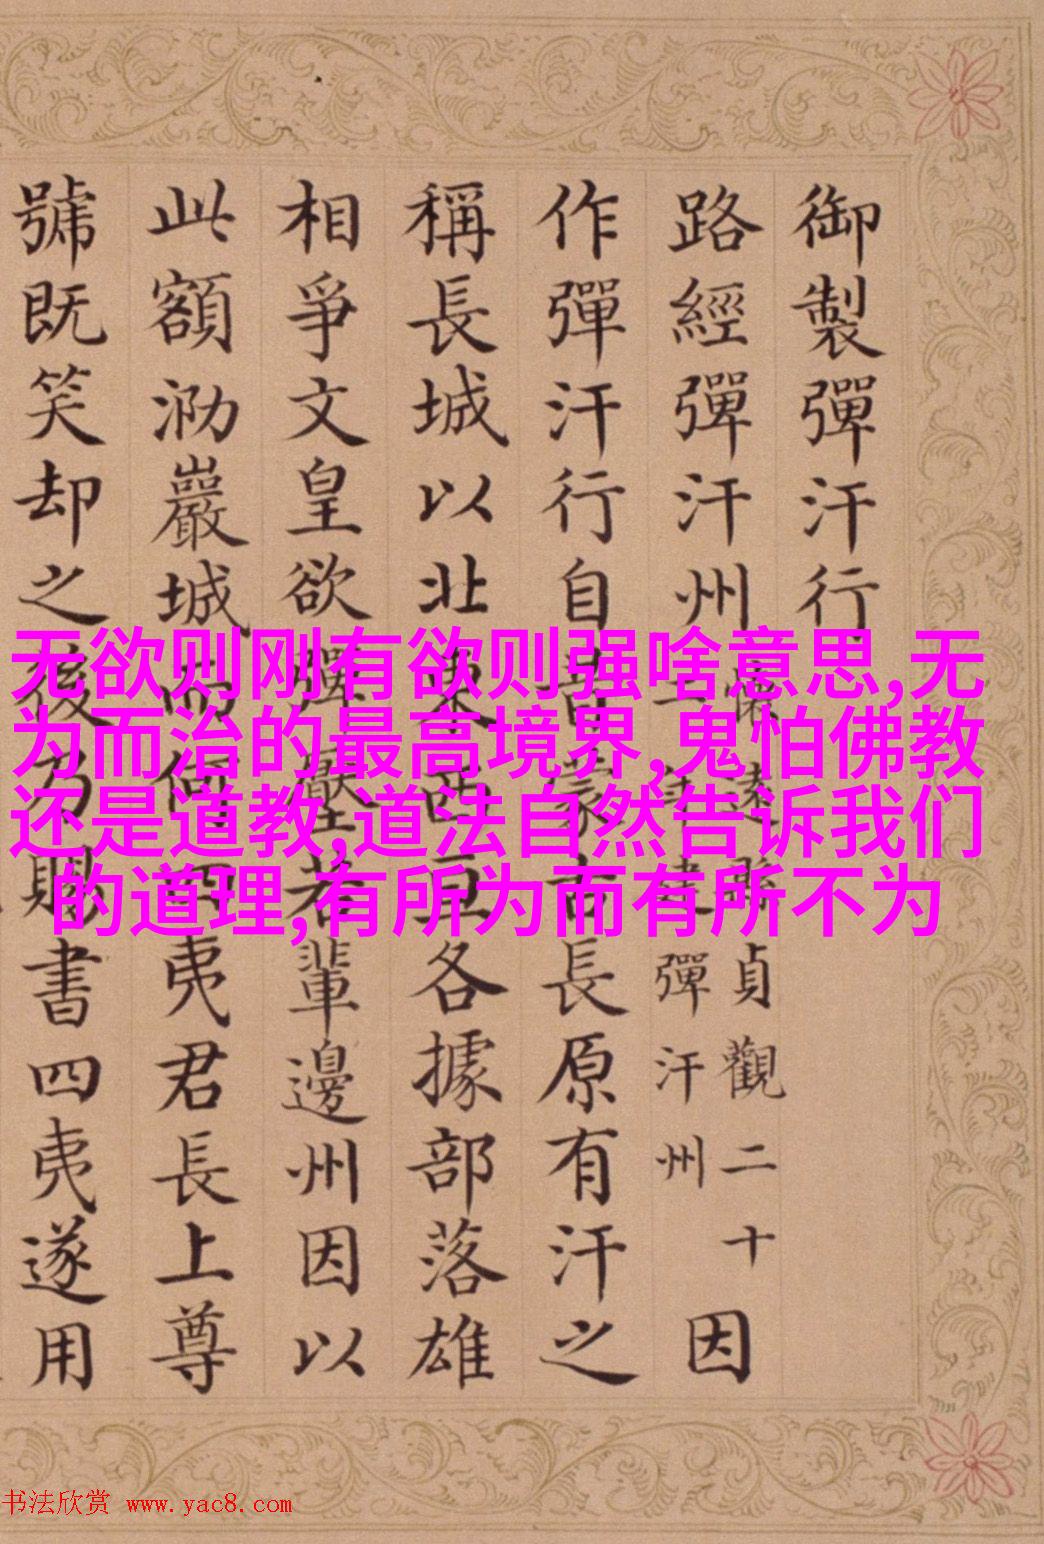 御製彈汗行
路經彈汗州
懷遠縣貞觀二十
二年建彈汗州
因
作彈汗行自昔蒙古長原有汗之
稱長城以北東西亘各據部落雄
相爭文皇欲彈壓若輩邊州因以
此額泐巖城而何四夷君長上尊
號既笑却之後乃賜書四夷遂用
无欲则刚有欲则强啥意思,无
为而治的最高境界,鬼怕佛教
还是道教,道法自然告诉我们
的道理,有所为而有所不为
书法欣赏 www.yac8.com